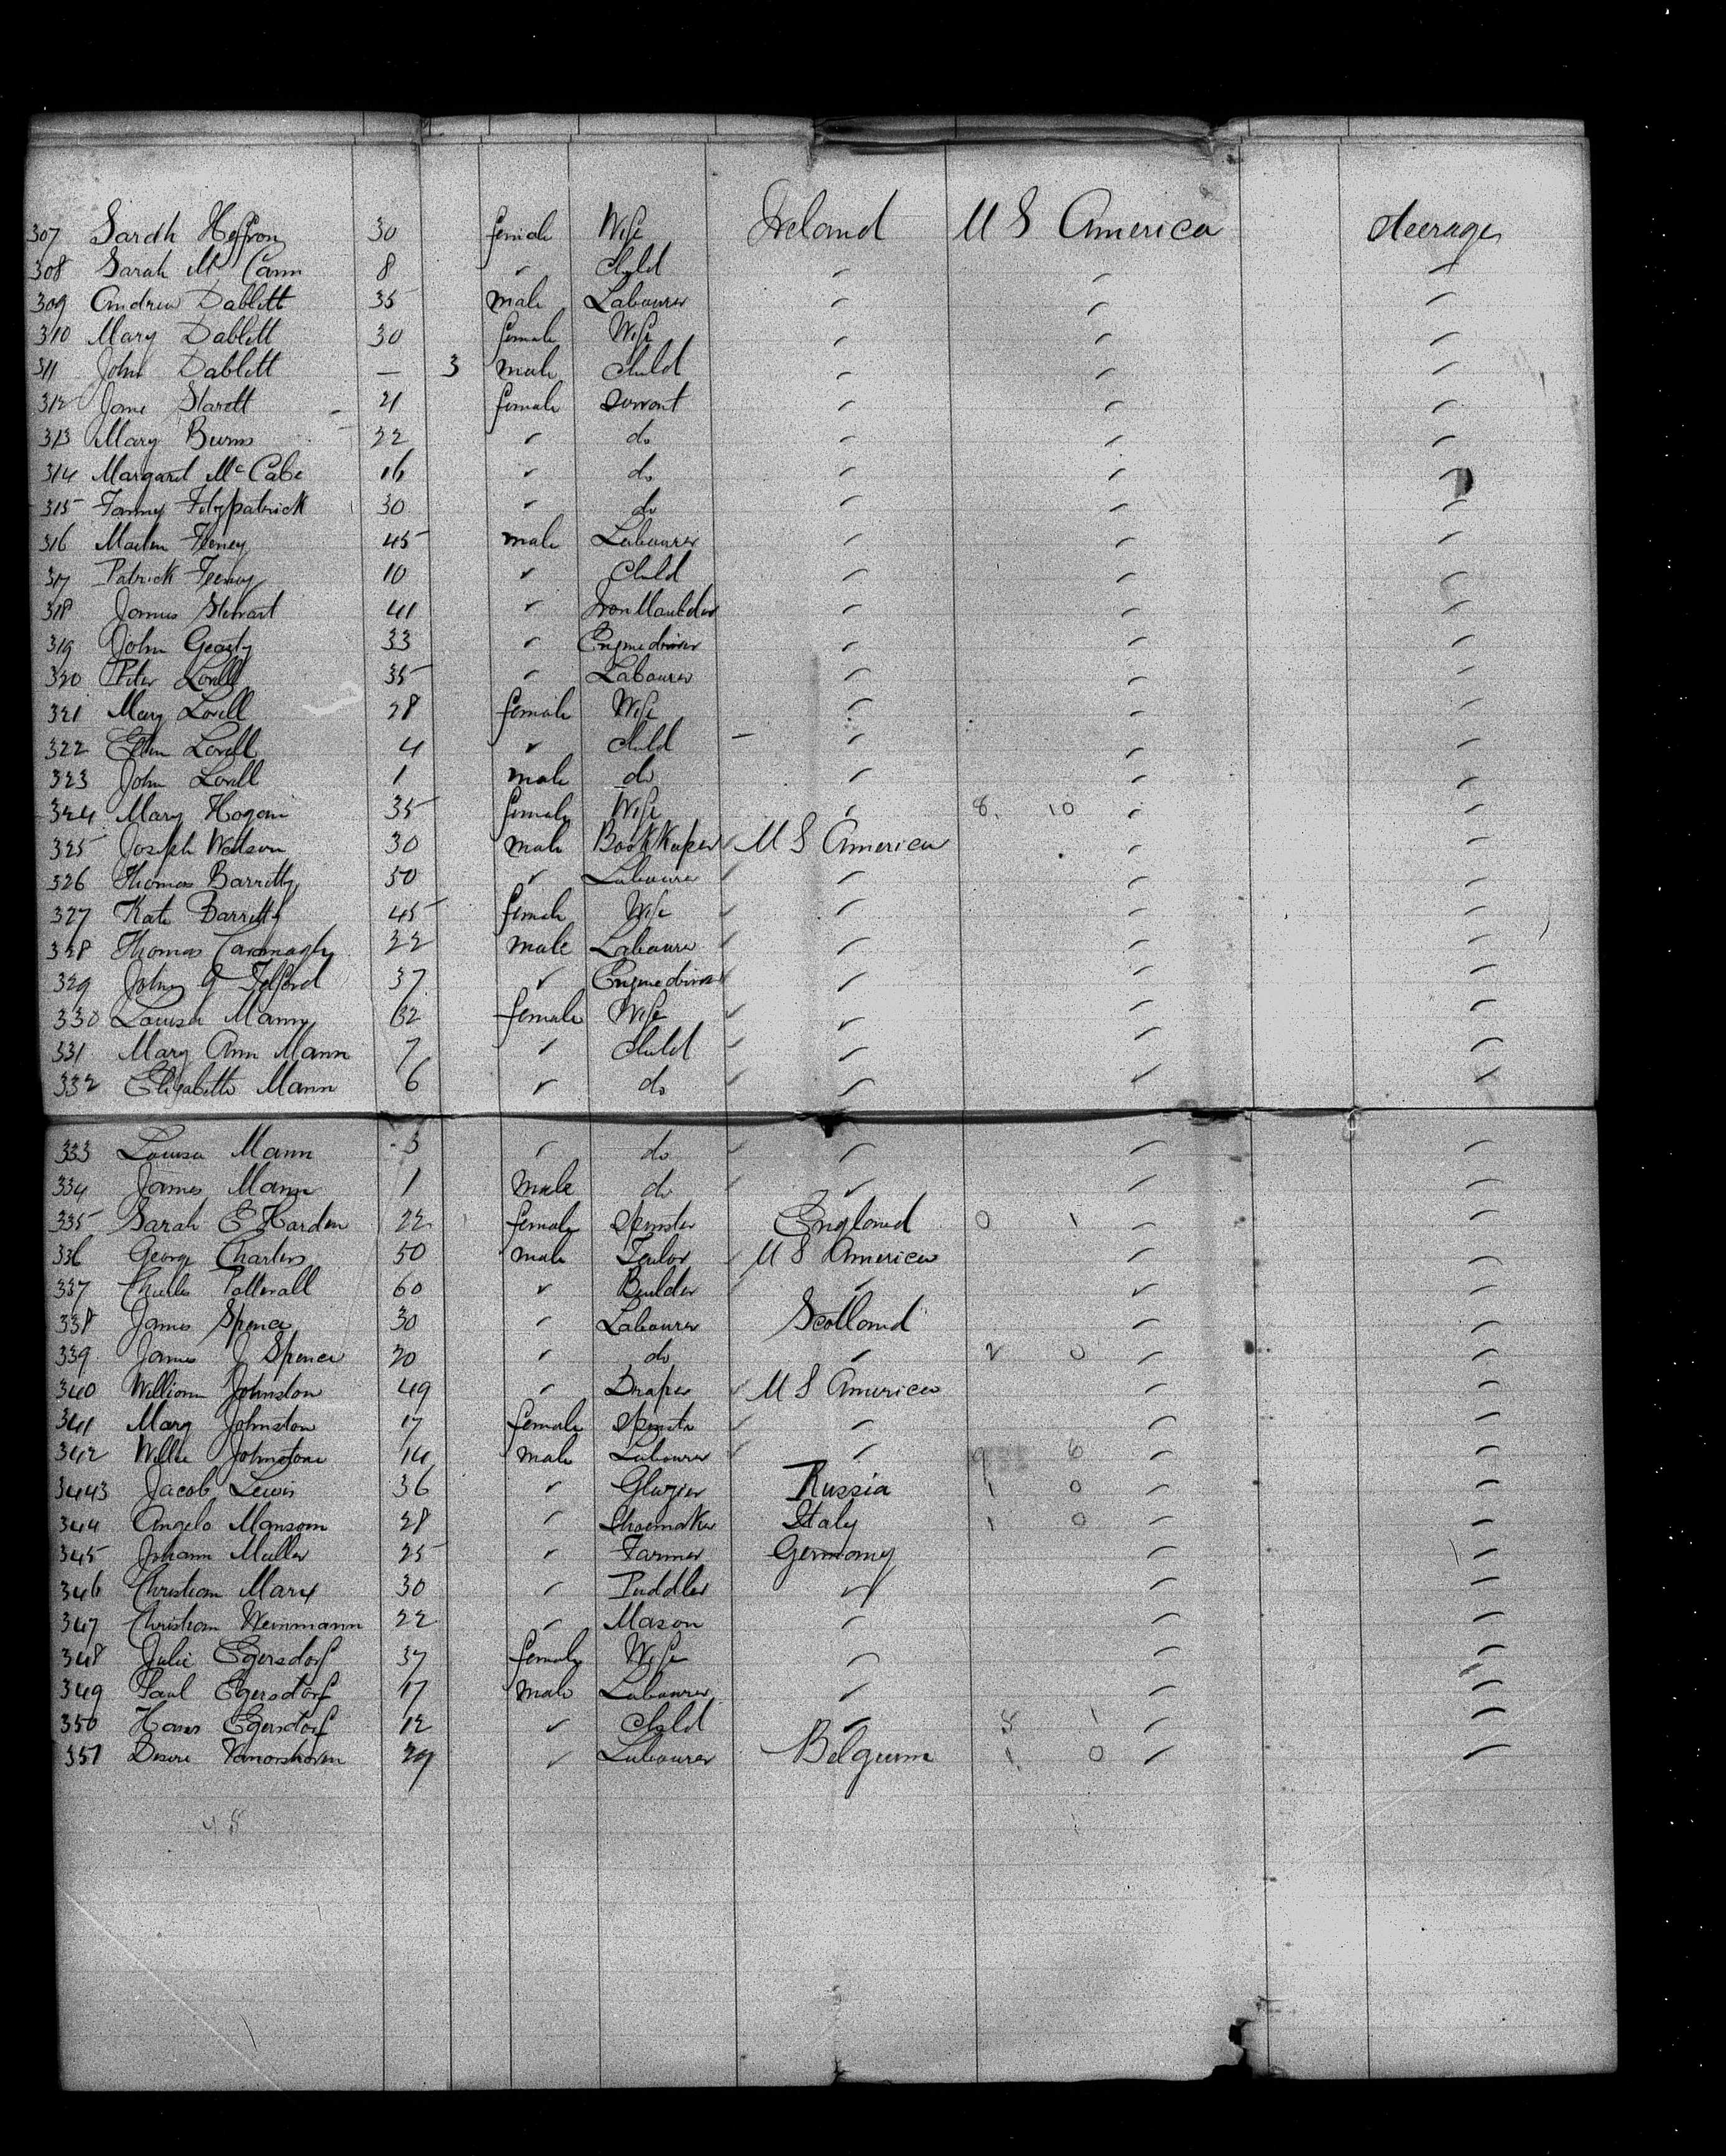 307 Sarah Heffron 30 female Wife Ireland U S America Steerage
308 Sarah Mc Cann 8 " Child " " "
309 Andrew Dablitt 35 male Labourer " " "
310 Mary Dablitt 30 female Wife " " "
311 John Dablitt — 3 male Child " " "
312 Jane Starett 21 female Servant " " "
313 Mary Burns 22 " do " " "
314 Margaret Mc Cabe 16 " do " " "
315 Fanny Fitzpatrick 30 " do " " "
316 Martin Feeney 45 male Labourer " " "
317 Patrick Feeney 10 " Child " " "
318 James Stewart 41 " Iron Moulder " " "
319 John Geaty 33 " Engine driver " " "
320 Peter Lovell 35 " Labourer " " "
321 Mary Lovell 28 female Wife " " "
322 Ellen Lovell 4 " Child " " "
323 John Lovell 1 male do " " "
324 Mary Hogan 35 female Wife " 8. 10 " "
325 Joseph Watson 30 male Book Keeper U S America " "
326 Thomas Barritty 50 " Labourer " " "
327 Kate Barritty 45 female Wife " " "
328 Thomas Cavanagh 22 male Labourer " " "
329 John G Telford 37 " Engine driver " " "
330 Louisa Mann 32 female Wife " " "
331 Mary Ann Mann 7 " Child " " "
332 Elizabeth Mann 6 " do " " "
333 Louisa Mann 3 " do " " "
334 James Mann 1 male do " " "
335 Sarah E Harden 22 female Spinster England 0 1 " "
336 George Charters 50 male Tailor U S America " "
337 Charles Pattenall 60 " Builder " " "
338 James Spence 30 " Labourer Scotland " "
339 James J Spence 20 " do " 2 0 " "
340 William Johnston 49 " Draper U S America " "
341 Mary Johnston 17 female Spinster " " "
342 Willie Johnstone 14 male Labourer " 6 " "
3443 Jacob Lewis 36 " Glazier Russia 1 0 " "
344 Angelo Mansom 28 " Shoemaker Italy 1 0 " "
345 Johann Muller 25 " Farmer Germany " "
346 Christian Marx 30 " Puddler " " "
347 Christian Weinmann 22 " Mason " " "
348 Julie Egersdorf 37 female Wife " " "
349 Paul Egersdorf 17 male Labourer " " "
350 Hans Egersdorf 12 " Child " 5 1 " "
351 Desire 29 " Labourer Belgium 1 0 " "